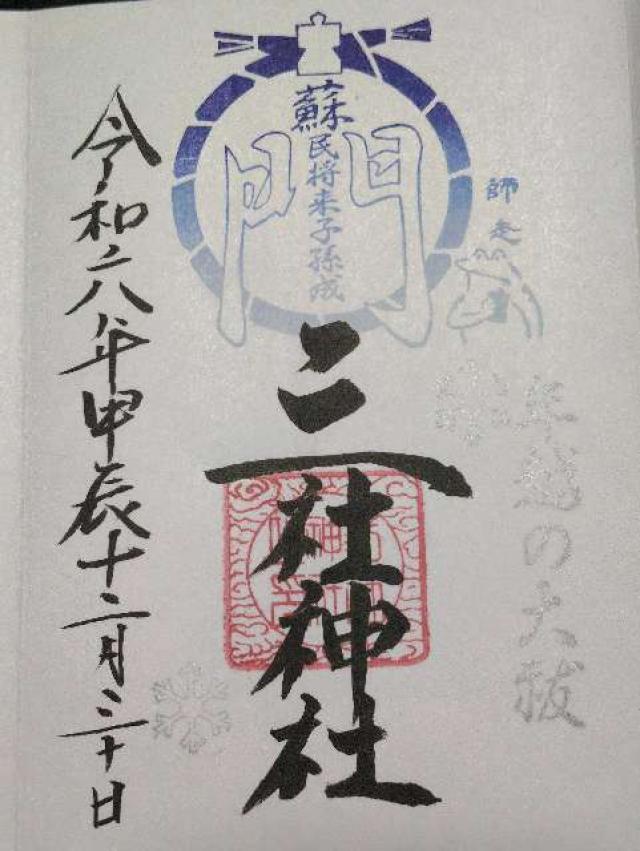 師走
年越の大祓
門
蘇民将来子孫成
三社神社
令和六年甲辰十二月三十日